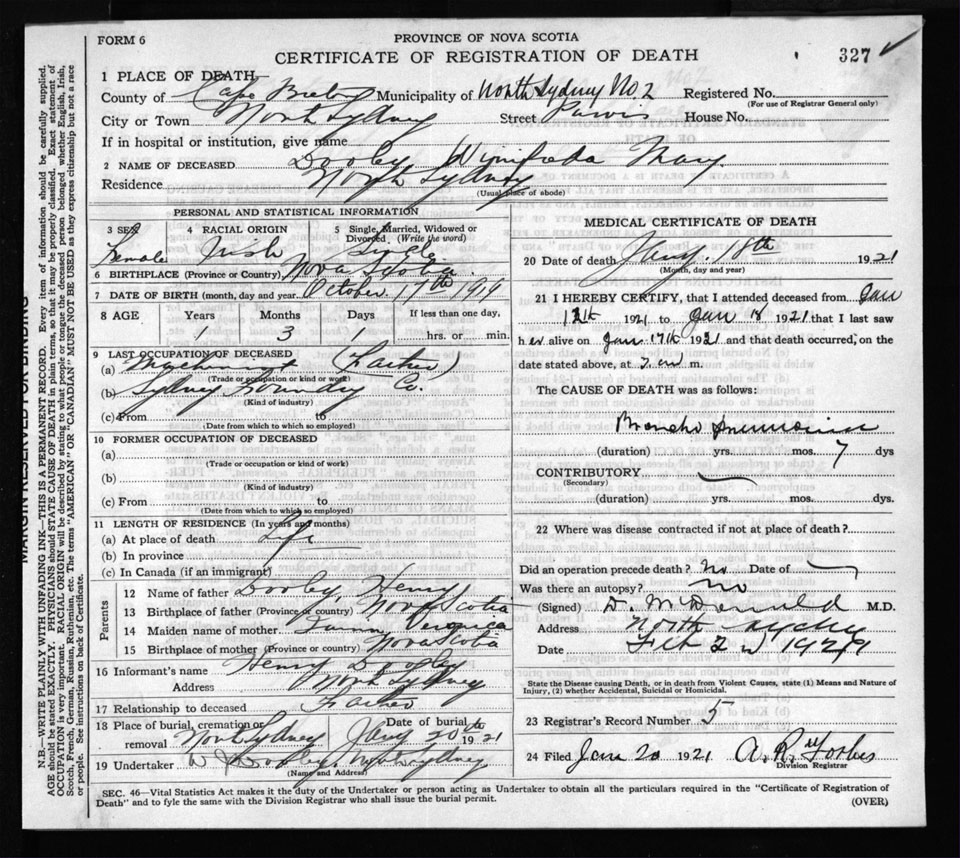 FORM 6
PROVINCE OF NOVA SCOTIA
CERTIFICATE OF REGISTRATION OF DEATH
327
1 PLACE OF DEATH—
County of Cape Breton Municipality of North Sydney No 2 Registered No.
(For use of Registrar General only)
City or Town North Sydney Street Purvis House No.
If in hospital or institution, give name
2 NAME OF DECEASED Dooley, Winifreda Mary
Residence North Sydney
(Usual place of abode)
PERSONAL AND STATISTICAL INFORMATION
3 SEX 4 RACIAL ORIGIN 5 Single, Married, Widowed or Divorced (Write the word)
Female Irish Single
6 BIRTHPLACE (Province or Country) Nova Scotia
7 DATE OF BIRTH (month, day and year) October 17th 1919
8 AGE Years Months Days If less than one day,
1 3 1 hrs. or min.
9 LAST OCCUPATION OF DECEASED
(a) Machinist (Father)
(Trade or occupation or kind of work)
(b) Sydney Foundry Co.
(Kind of industry)
(c) From to
(Date from which to which so employed)
10 FORMER OCCUPATION OF DECEASED
(a)
(Trade or occupation or kind of work)
(b)
(Kind of industry)
(c) From to
(Date from which to which so employed)
11 LENGTH OF RESIDENCE (In years and months)
(a) At place of death Life
(b) In province
(c) In Canada (if an immigrant)
Parents
12 Name of father Dooley, Henry
13 Birthplace of father (Province or country) Nova Scotia
14 Maiden name of mother Veronica
15 Birthplace of mother (Province or country) Nova Scotia
16 Informant's name Henry Dooley
Address North Sydney
17 Relationship to deceased Father
18 Place of burial, cremation or removal North Sydney Date of burial Jany 20th 1921
19 Undertaker Dooley, North Sydney
(Name and Address)
MEDICAL CERTIFICATE OF DEATH
20 Date of death Jany. 18th 1921
(Month, day and year)
21 I HEREBY CERTIFY, that I attended deceased from Jan
12th 1921 to Jan 18 1921 that I last saw
her alive on Jan 17th 1921 and that death occurred, on the
date stated above, at m.
The CAUSE OF DEATH was as follows:
Broncho Pneumonia
(duration) yrs. mos. 7 dys
CONTRIBUTORY
(Secondary)
(duration) yrs. mos. dys.
22 Where was disease contracted if not at place of death?
Did an operation precede death? No Date of
Was there an autopsy? no
(Signed) D. McDonald M.D.
Address North Sydney
Date Feb 2nd 1929
State the Disease causing Death, or in death from Violent Causes, state (1) Means and Nature of
Injury, (2) whether Accidental, Suicidal or Homicidal.
23 Registrar's Record Number 5
24 Filed Jan 20 1921 A. R. Forbes
Division Registrar
SEC. 46—Vital Statistics Act makes it the duty of the Undertaker or person acting as Undertaker to obtain all the particulars required in the "Certificate of Registration of
Death" and to fyle the same with the Division Registrar who shall issue the burial permit.
(OVER)
MARGIN RESERVED FOR BINDING
N.B.—WRITE PLAINLY WITH UNFADING INK—THIS IS A PERMANENT RECORD. Every item of information should be carefully supplied.
AGE should be stated EXACTLY. PHYSICIANS should STATE CAUSE OF DEATH in plain terms, so that it may be properly classified. Exact statement of
OCCUPATION is very important. RACIAL ORIGIN will be described by stating to what people or tongue the deceased person belonged whether English, Irish,
Scotch, French, German, Russian, Ruthenian, etc. The terms "AMERICAN" OR "CANADIAN" MUST NOT BE USED as they express citizenship but not a race
or people. See instructions on back of Certificate.